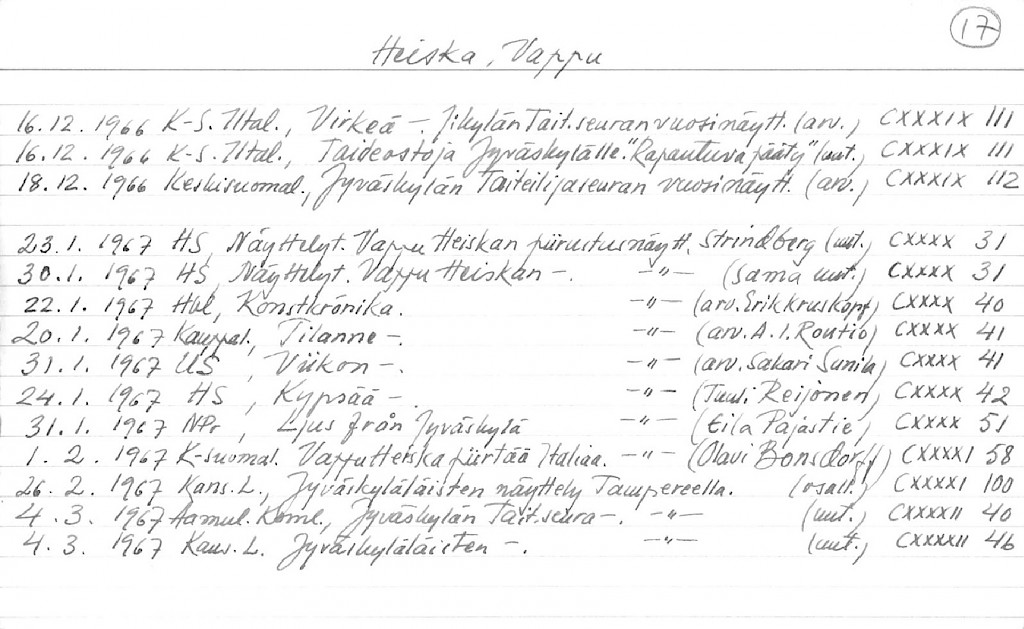 17
Heiska, Vappu
16.12.1966 K-S. Iltal., Virkeä -. Jkylän Tait.seuran vuosinäytt. (arv.) CXXXIX 111
16.12.1966 K-S. Iltal., Taideostoja Jyväskylälle. "Rapautuva pääty" (uut.) CXXXIX 111
18.12.1966 Keskisuomal., Jyväskylän Taiteilijaseuran vuosinäytt. (arv.) CXXXIX 112
23.1. 1967 HS, Näyttelyt. Vappu Heiskan piirustusnäytt. Strindberg (uut.) CXXXX 31
30.1. 1967 HS, Näyttelyt. Vappu Heiskan -. -"- (sama uut.) CXXXX 31
22.1. 1967 Hbl, Konstkrönika. -"- (arv. Erik Kruskopf) CXXXX 40
20.1. 1967 Kauppal., Tilanne -. -"- (arv. A.I. Routio) CXXXX 41
31.1. 1967 US, Viikon -. -"- (arv. Sakari Sunila) CXXXX 41
24.1. 1967 HS, Kypsää - -"- (Tuuli Reijonen) CXXXX 42
31.1. 1967 NPr, Ljus från Jyväskylä -"- (Eila Pajastie) CXXXX 51
1. 2. 1967 K-suomal. Vappu Heiska piirtää Italiaa. -"- (Olavi Bonsdorff) CXXXXI 58
26. 2. 1967 Kans.L., Jyväskyläläisten näyttely Tampereella. (osall.) CXXXXI 100
4. 3. 1967 Aamul. Koml., Jyväskylän Tait.seura -. -"- (uut.) CXXXXII 40
4. 3. 1967 Kans. L. Jyväskyläläisten -. -"- (uut.) CXXXXII 46